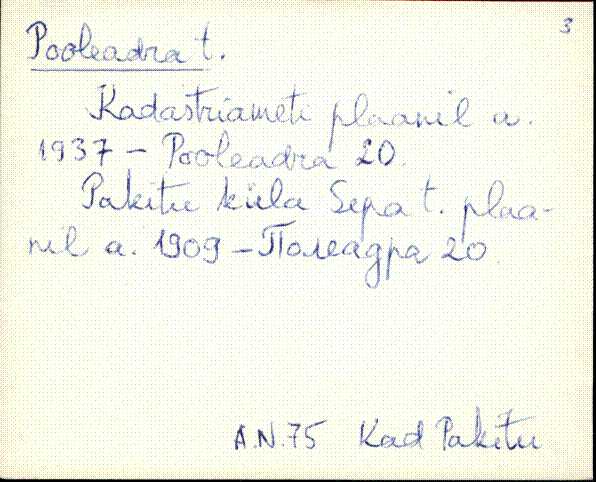 3
Pooleadra t.
Kadastriameti plaanil a.
1937 – Pooleadra 20.
Pakitu küla Sepa t. plaa-
nil a. 1909 – Полеадра 20.
A.N.75 Kad Pakitu